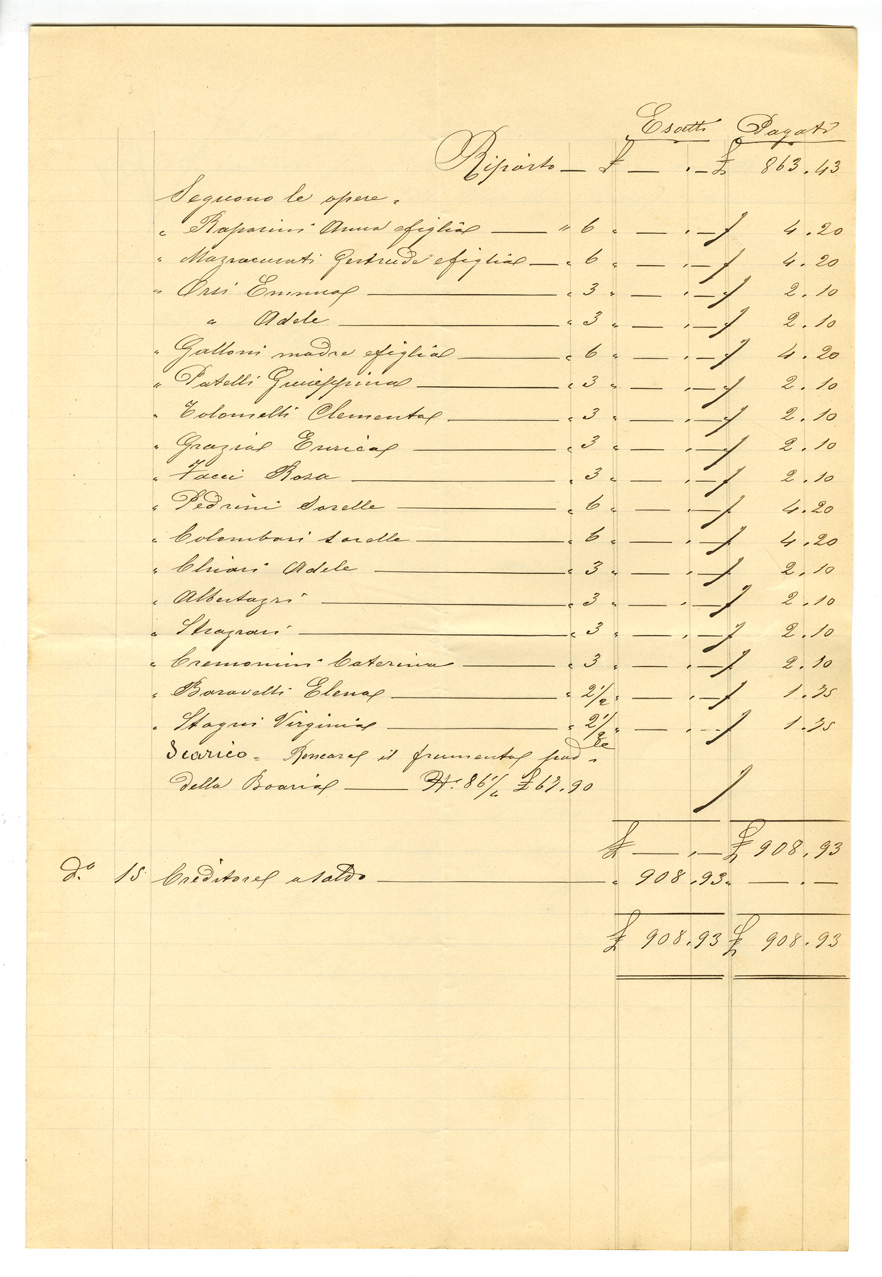 Esatti Pagati
Riporto — £ — . — £ 863.43
Seguono le opere.
" Raparini Anna e figlia — " 6 " — . — 4.20
" Mazzacurati Gertrude e figlia — " 6 " — . — 4.20
" Orsi Emma — " 3 " — . — 2.10
" Adele — " 3 " — . — 2.10
" Galloni madre e figlia — " 6 " — . — 4.20
" Patelli Giuseppina — " 3 " — . — 2.10
" Clementa — " 3 " — . — 2.10
" Grazia Enrica — " 3 " — . — 2.10
" Rosa — " 3 " — . — 2.10
" Pedrini sorelle — " 6 " — . — 4.20
" Colombari sorelle — " 6 " — . — 4.20
" Chiari Adele — " 3 " — . — 2.10
" Albertazzi — " 3 " — . — 2.10
" — " 3 " — . — 2.10
" Cremonini Caterina — " 3 " — . — 2.10
" Baravelli Elena — " 2 1/2 " — . — 1.75
" Stagni Virginia — " 2 1/2 " — . — 1.75
Scarico = il frumento
della Boaria — £ 67.90
£ — . — £ 908.93
d.o 15 Creditore a saldo — " 908.93 " — . —
£ 908.93 £ 908.93